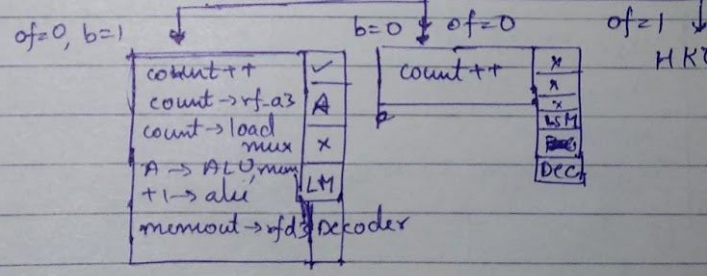 of=0, b=1
b=0
of=0
of=1
HKT
count++
✓
count→rf_a3
A
count→load
mux
x
A→ALU, mem
LM
+1→alu
memout→rfd3
Decoder
count++
x
x
x
LSM
DEC